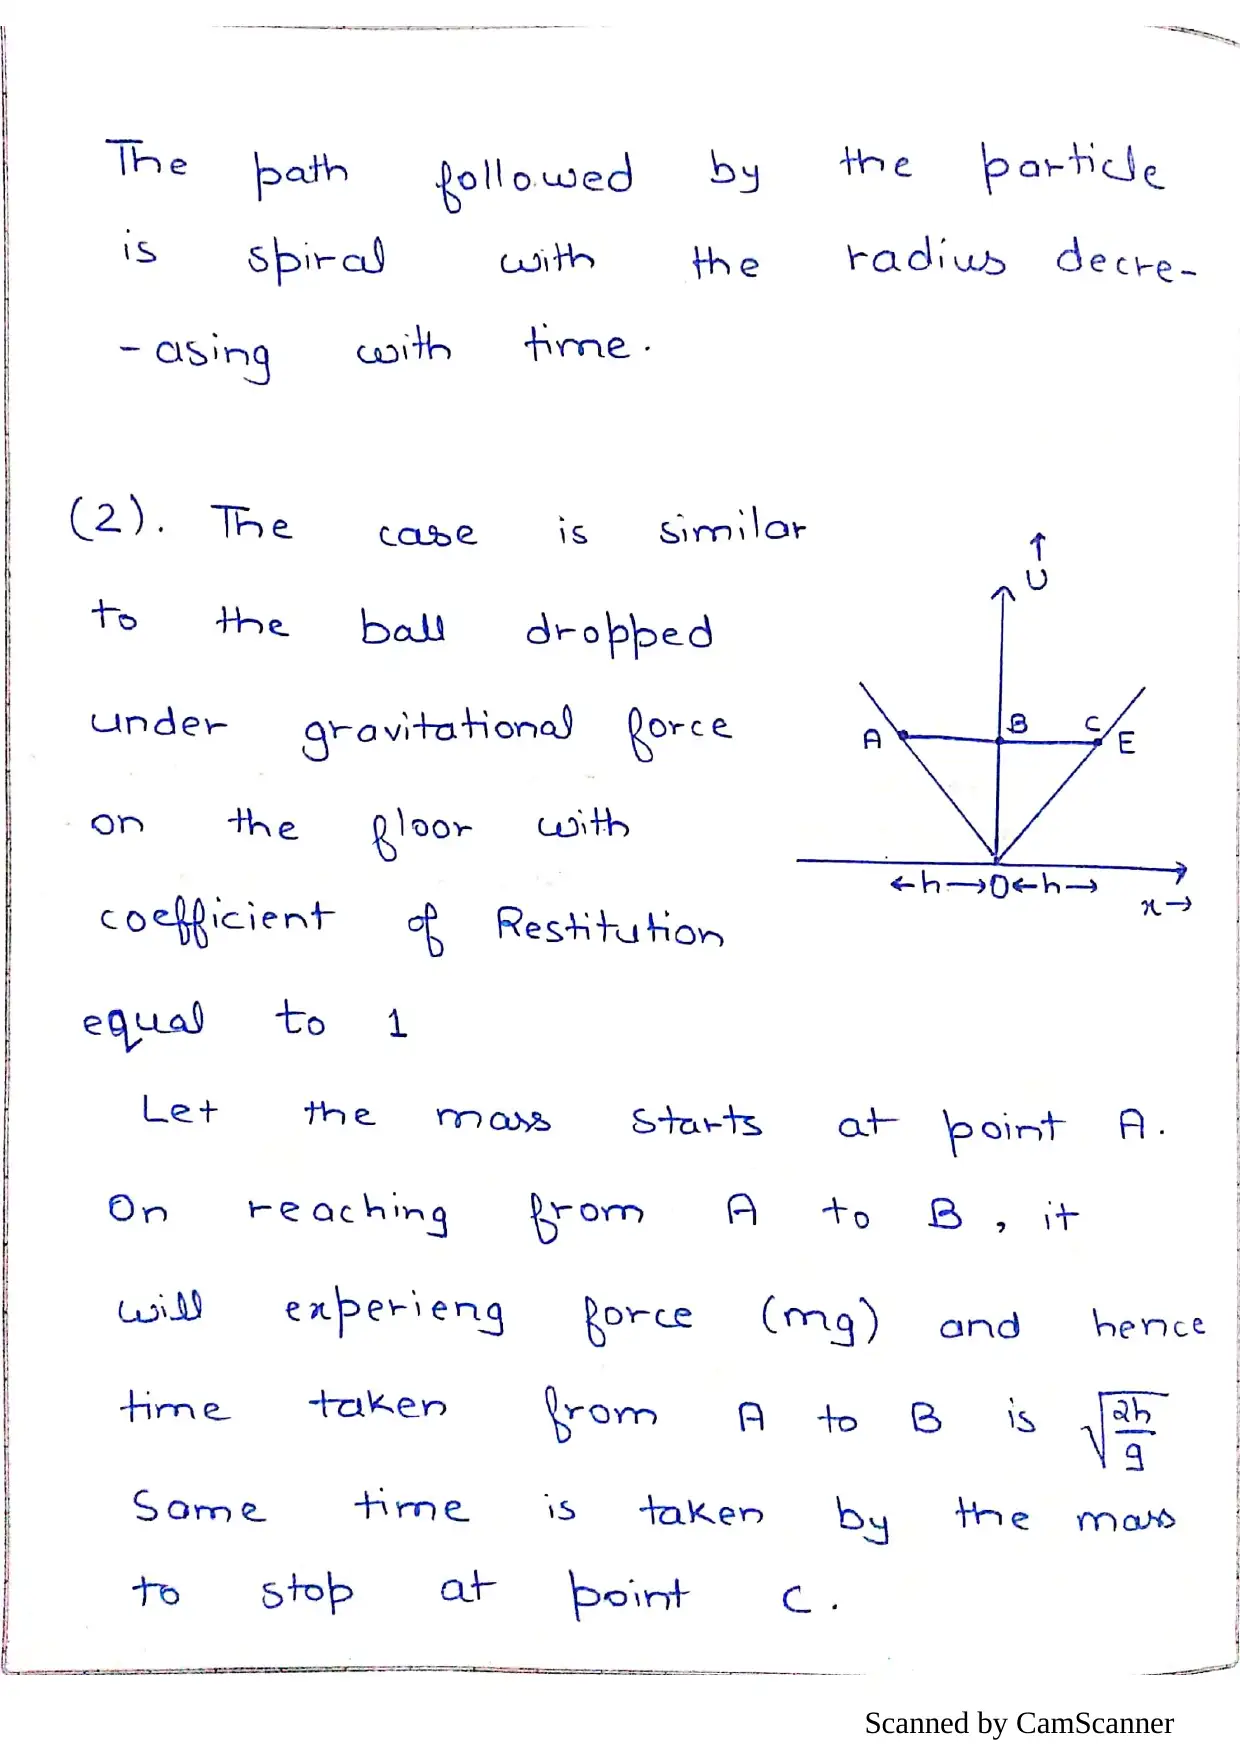 The path followed by the particle
is spiral with the radius decre-
- asing with time.
(2). The case is similar
to the ball dropped
under gravitational force
on the floor with
coefficient of Restitution
equal to 1
↑
U
A B C E
←h→O←h→
x→
Let the mass starts at point A.
On reaching from A to B, it
will experieng force (mg) and hence
time taken from A to B is √(2h/g)
Same time is taken by the mass
to stop at point C.
Scanned by CamScanner